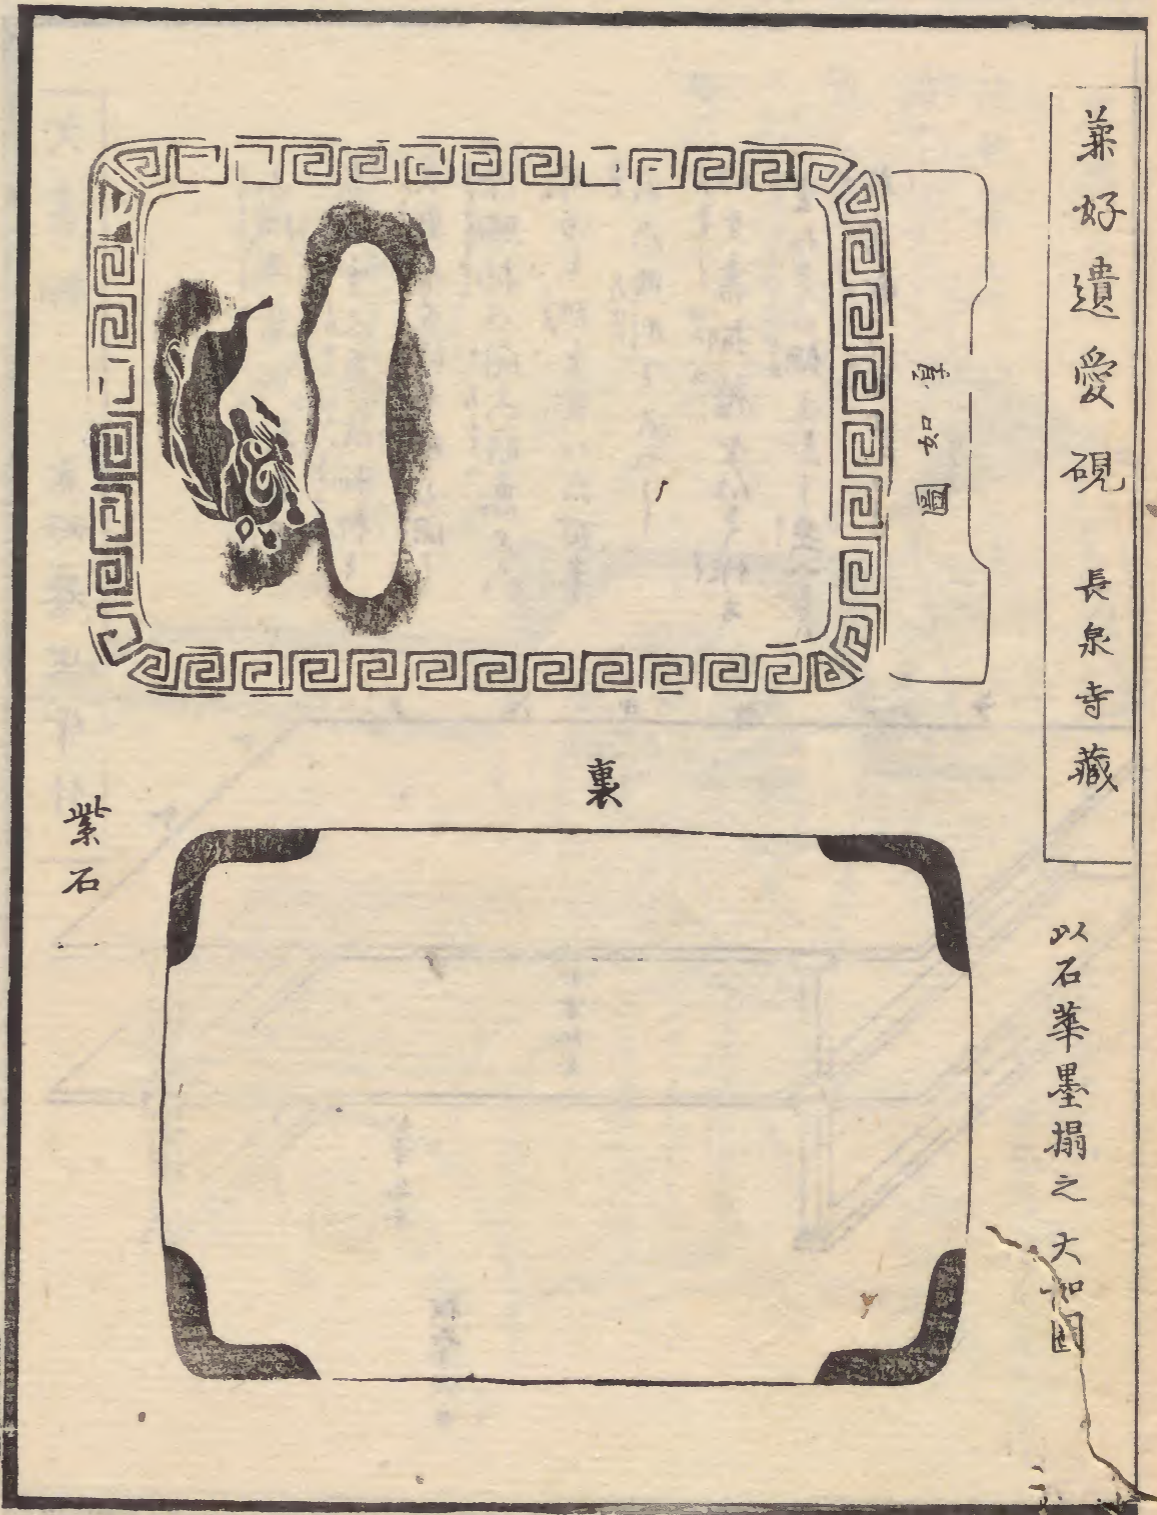 兼好遺愛硯 長泉寺藏
以石華墨搨之 大如圖
厚如圖
裏
紫石